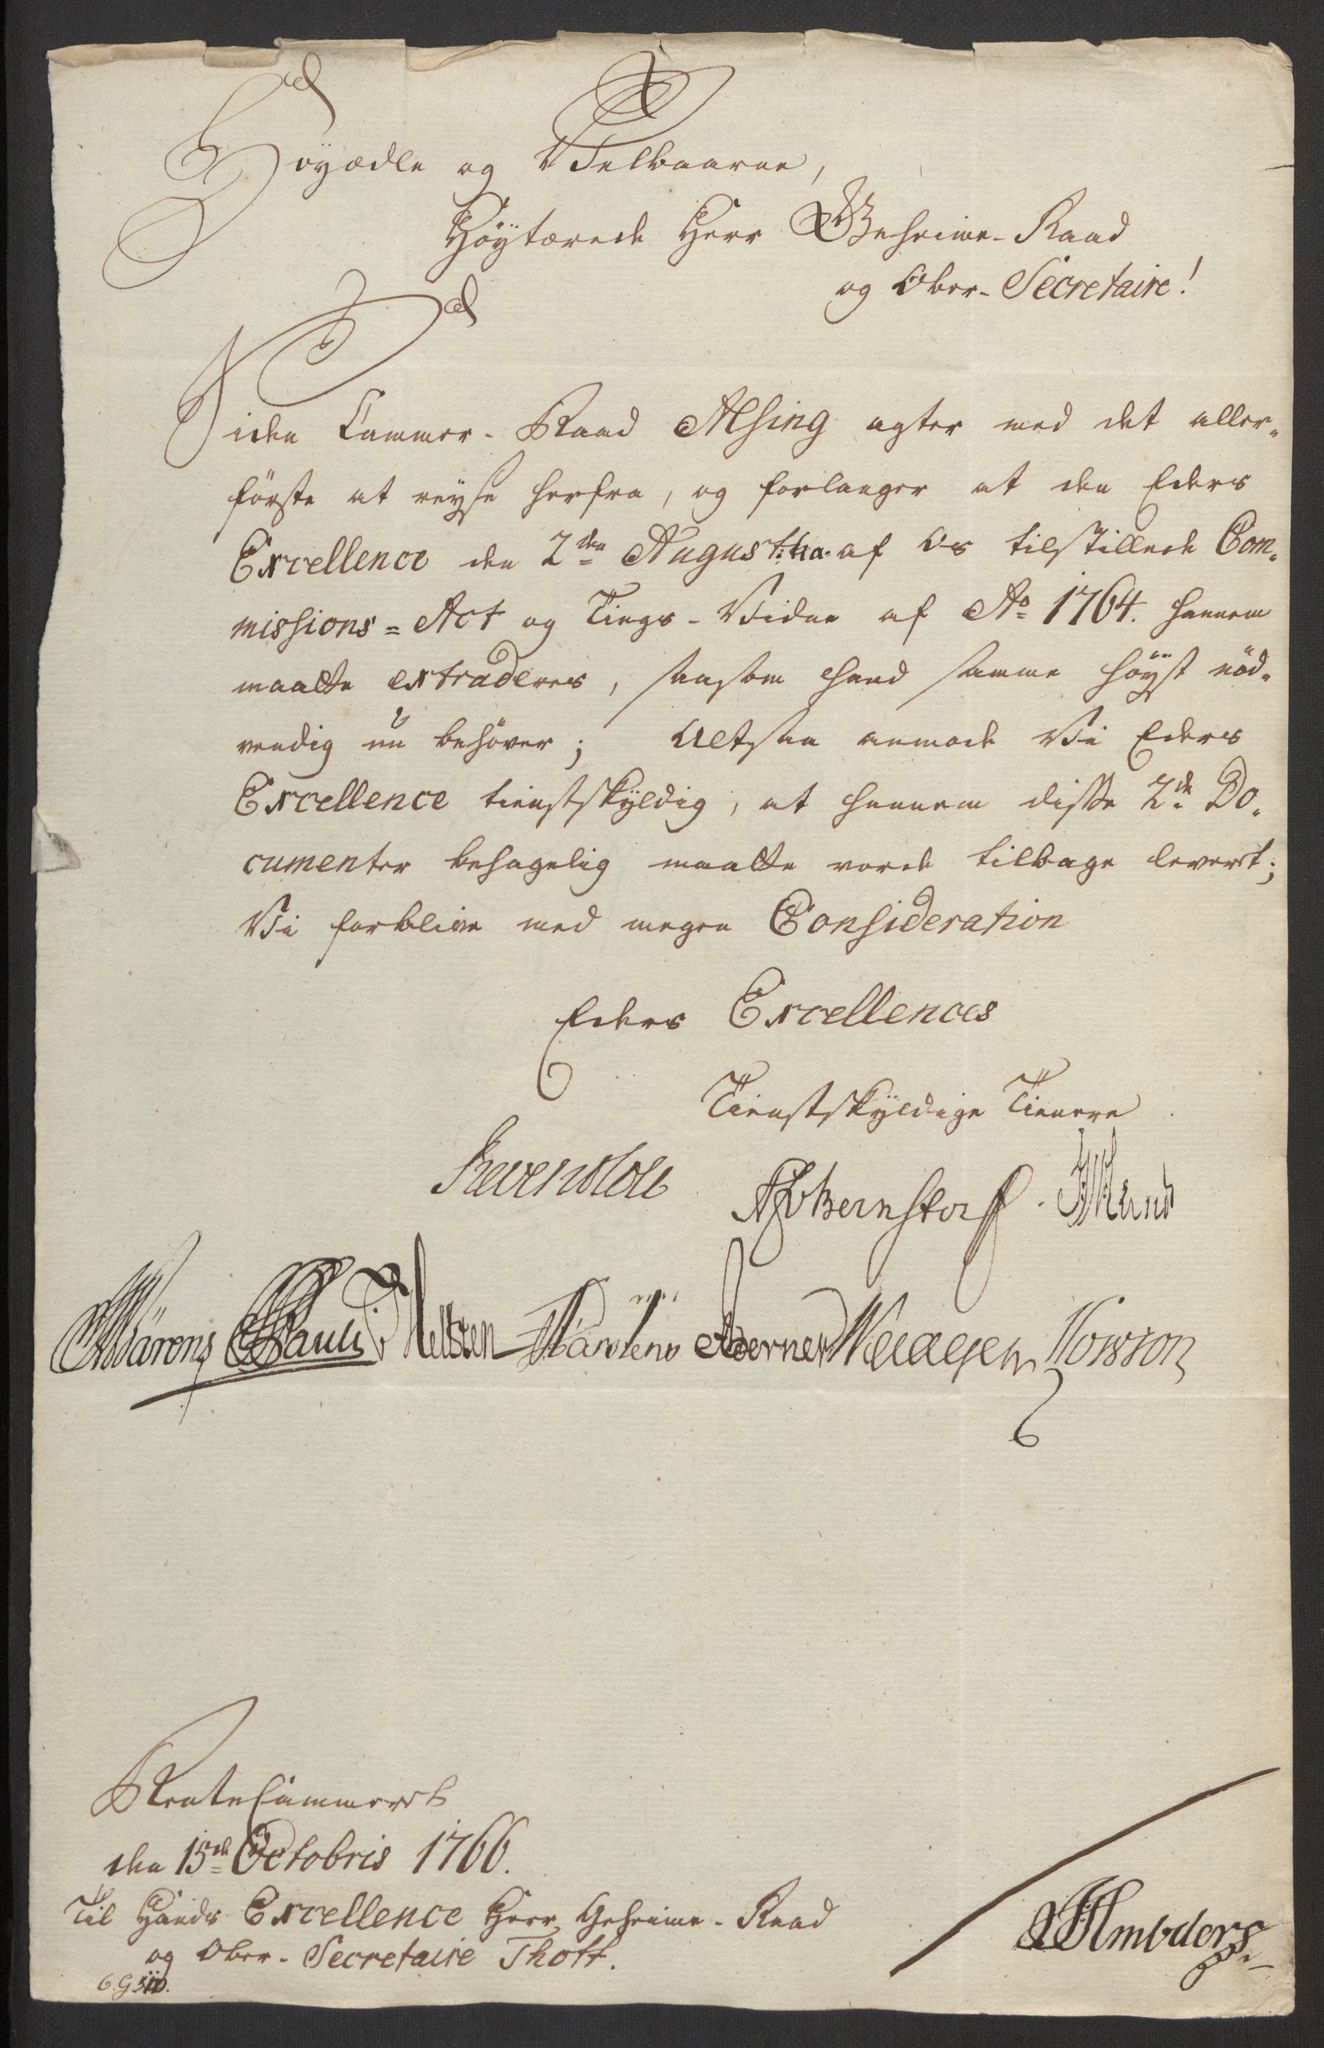 Høyædle og Velbaarne,
Høystærede Herr Geheime-Raad
og Ober-Secretaire!
Siden Cammer-Raad Alsing agter med det aller-
første at reyse herfra, og forlanger at den Eders
Excellence den 2den August: h:a: af os tilstillede Com-
missions=Act og Tings-Vidne af Ao 1764. hannem
maatte extraderes, saasom hand samme høyst nød-
vendig nu behøver; Altsaa anmode Vi Eders
Excellence tienstskyldig, at hannem disse 2de Do-
cumenter behagelig maatte vorde tilbage levert;
Vi forblive med megen Consideration
Eders Excellences
Tienstskyldige Tienere
Reventlow AGBernstorff.
Wärens Pauli Hellsen Berner Howson
RenteCammeret
den 15de Octobris 1766.
Til Hands Excellence Herr Geheime-Raad
og Ober-Secretaire Thott.
Ambders